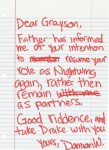 Dear Grayson,
Father has informed
me of your intention
to resume your
role as Nightwing
again, rather then
remain
as partners.
Good Riddence, and
take Drake with you
yours, Damian W.